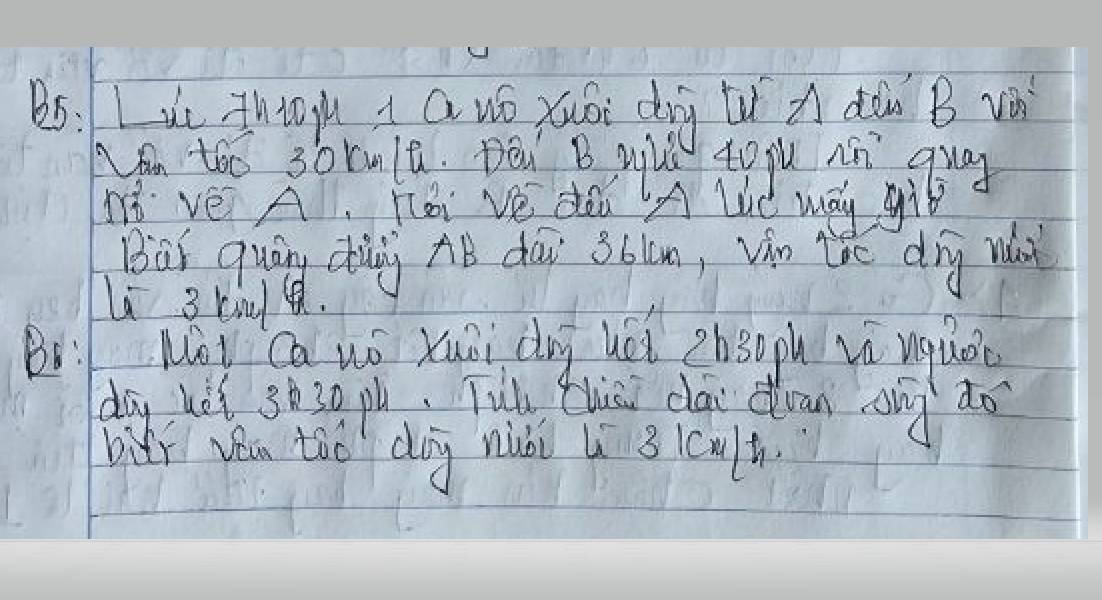 B5: Lúc 7h10ph 1 Ca nô xuôi dòng từ A đến B với
vận tốc 30km/h. Đến B nghỉ 40ph rồi quay
trở về A. Hỏi về đến A lúc mấy giờ
Biết quãng đường AB dài 36km, vận tốc dòng nước
là 3km/h.
B6: Một Ca nô xuôi dòng hết 2h30ph và ngược
dòng hết 3h30ph. Tính chiều dài đoạn sông đó
biết vận tốc dòng nước là 3km/h.